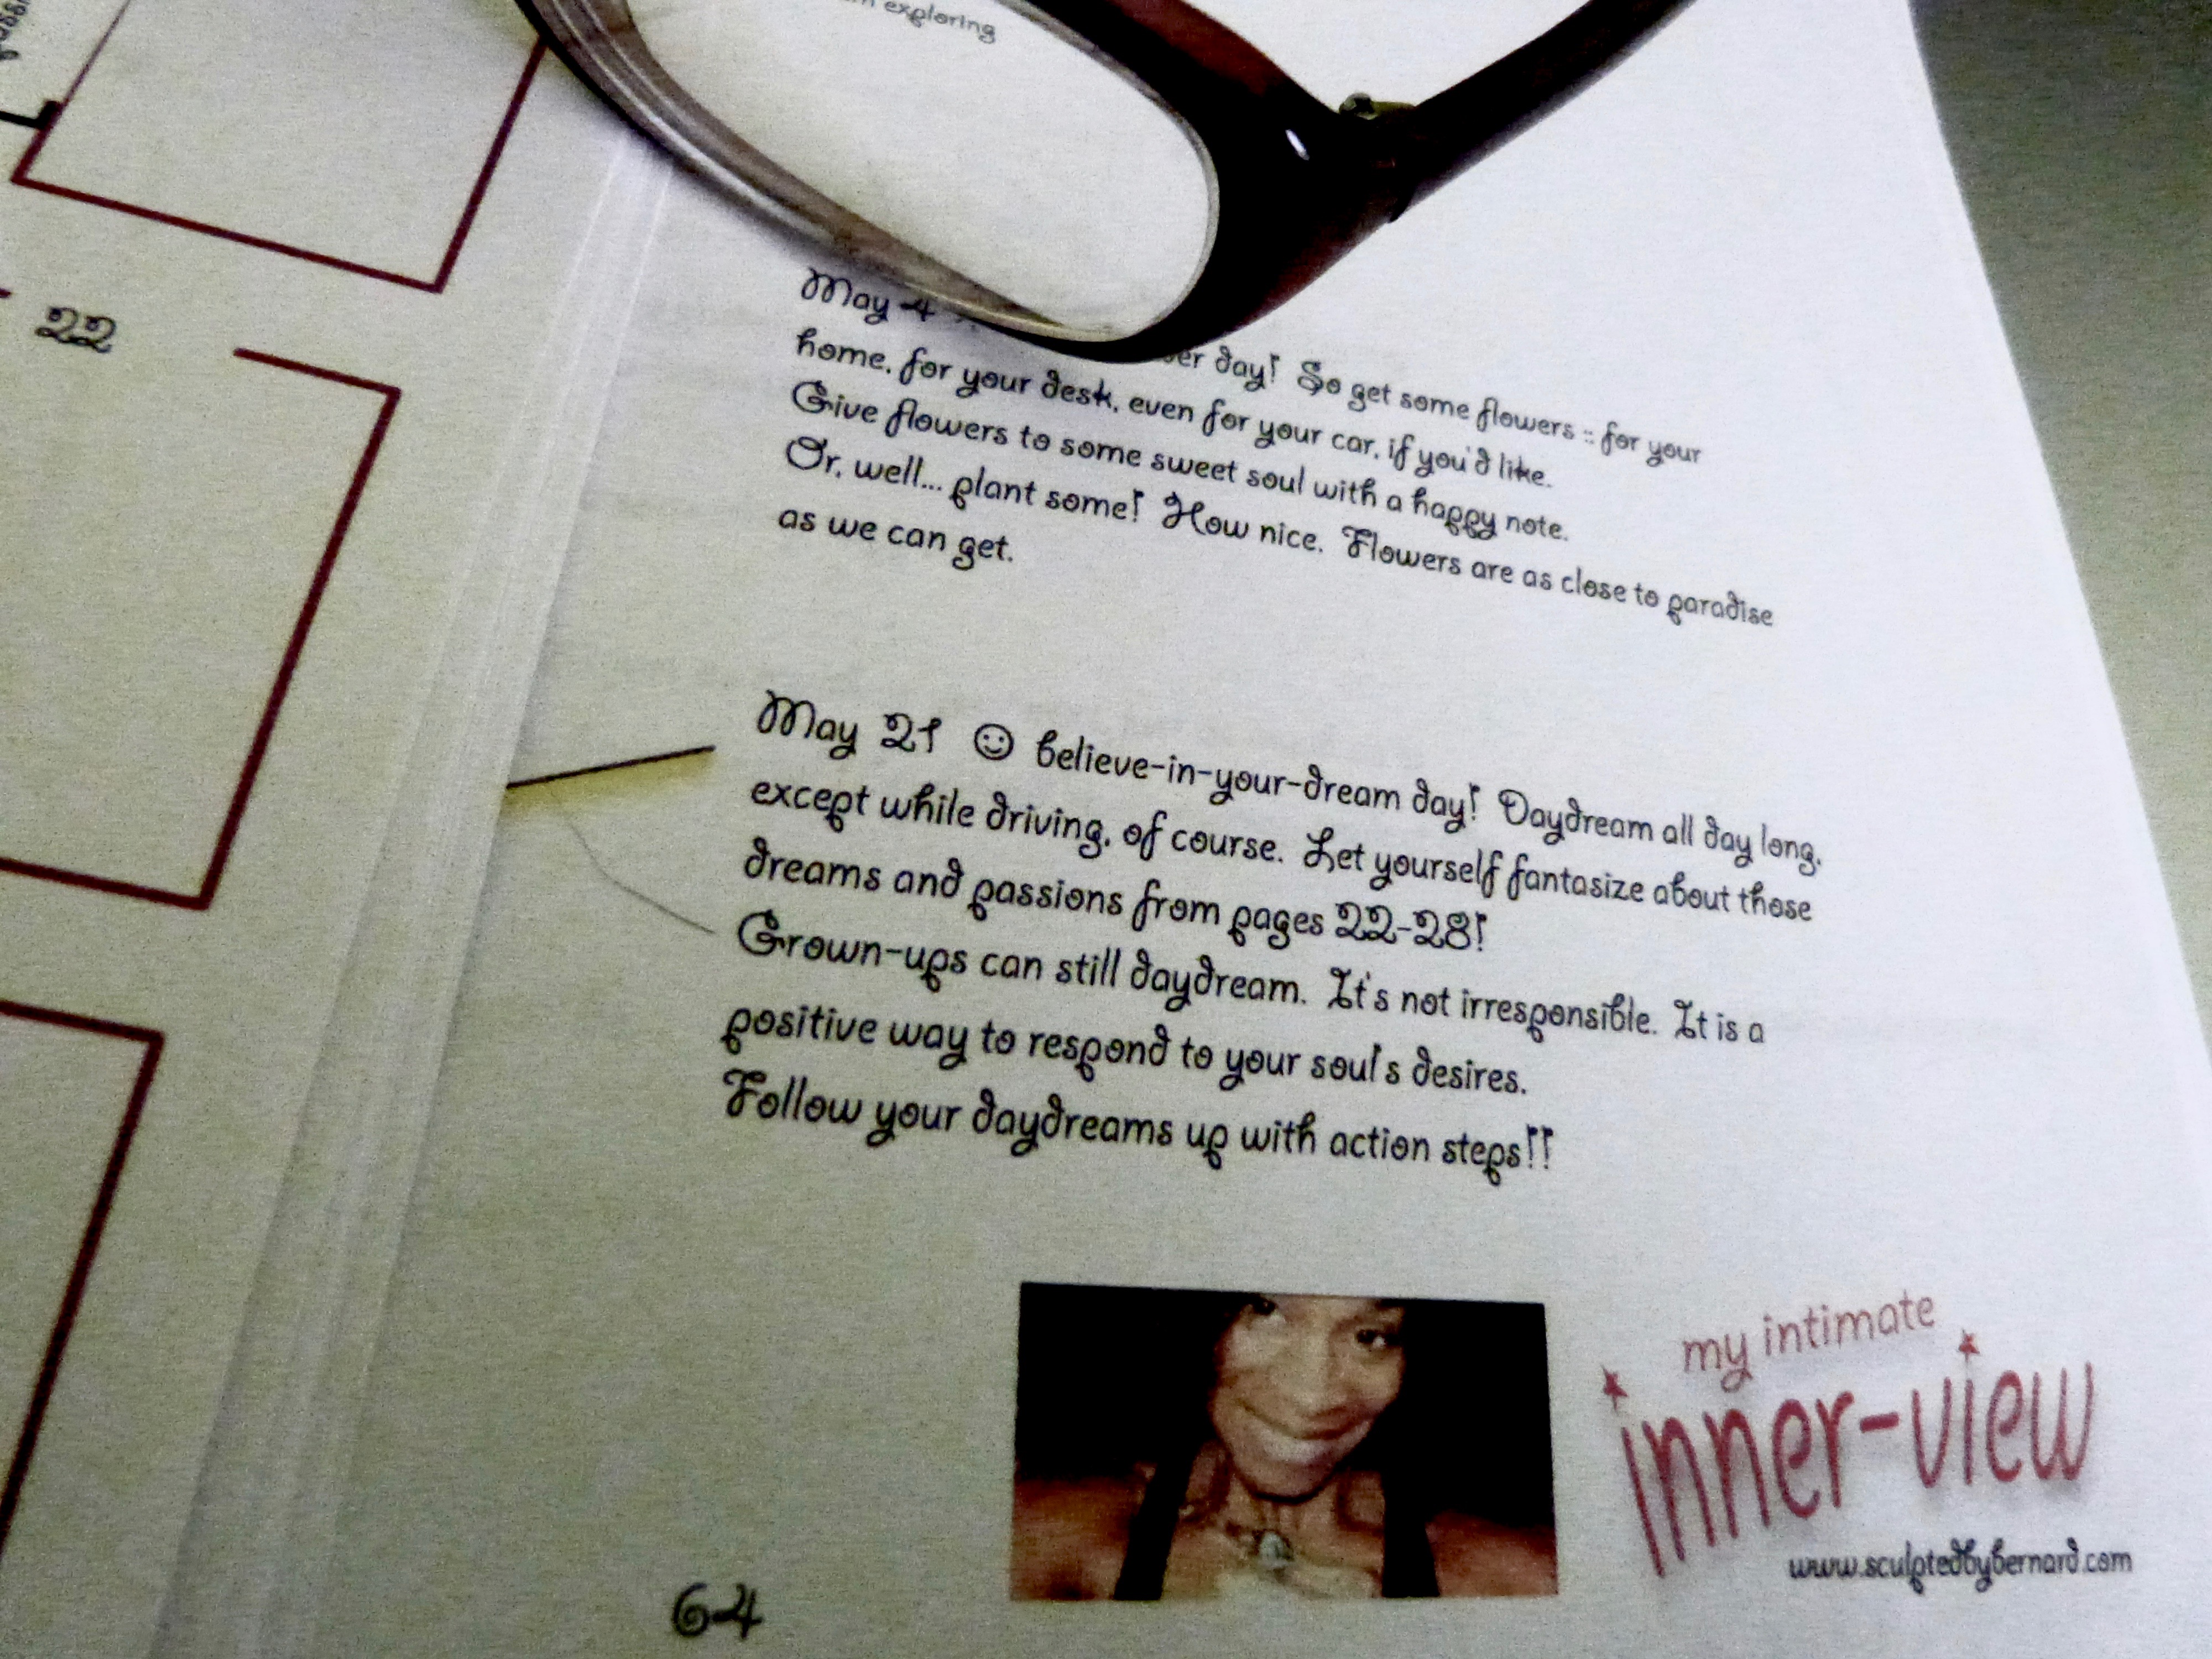 exploring
22
May 4 day! So get some flowers :: for your
home, for your desk, even for your car, if you'd like.
Give flowers to some sweet soul with a happy note.
Or, well... plant some! How nice. Flowers are as close to paradise
as we can get.
May 21 ☺ believe-in-your-dream day! Daydream all day long,
except while driving, of course. Let yourself fantasize about those
dreams and passions from pages 22-28!
Grown-ups can still daydream. It's not irresponsible. It is a
positive way to respond to your soul's desires.
Follow your daydreams up with action steps!!
my intimate
inner-view
www.sculptedbybernard.com
64